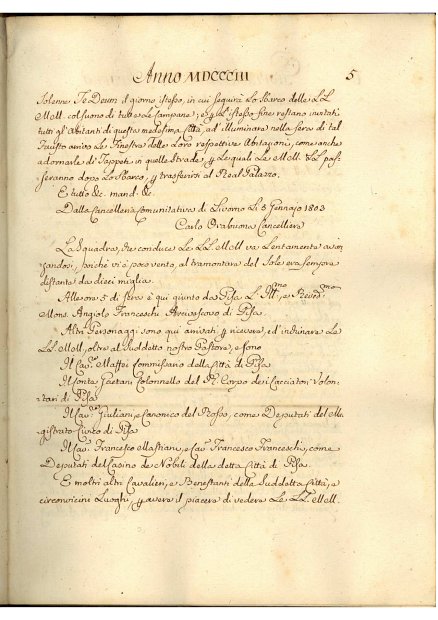 Anno MDCCCIII 5
solenne Te Deum il giorno istesso, in cui seguirà lo sbarco delle LL
MM. col suono di tutte le Campane; e p l'istesso fine restano invitati
tutti gl'Abitanti di questa medesima Città, ad illuminare nella sera di tal
fausto arrivo le Finestre delle Loro respettive Abitazioni, come anche
adornarle di Tappeti in quelle Strade, p le quali Le MM. LL. pas=
seranno dopo lo sbarco, p trasferirsi al Real Palazzo.
E tutto &c. mand. &c
Dalla Cancelleria Comunitativa di Livorno Li 3 Gennajo 1803
Carlo Orabuona Cancelliere
La Squadra, che conduce Le LL. MM. va Lentamente avan=
zandosi, poiché vi è poco vento, al tramontare del Sole era sempre
distante da dieci miglia.
Alle ore 5 di sera è qui giunto da Pisa L'Illmo, e Revdmo
Mons. Angiolo Franceschi Arcivescovo di Pisa.
Altri Personaggi sono qui arrivati p ricevere, ed inchinare Le
LL. MM., oltre al Suddetto nostro Pastore, e sono
Il Cavr. Maffei Commissario della Città di Pisa
Il Conte Gaetani Colonnello del Rl. Corpo dei Cacciatori Volon=
tari di Pisa
Il Cavr. Giuliani, e Canonico del Rosso, come Deputati del Ma=
gistrato Civico di Pisa
Il Cavr. Francesco Mastiani, e Cavr. Francesco Franceschi, come
Deputati del Casino de Nobili della detta Città di Pisa.
E molti altri Cavalieri, e Benestanti della Suddetta Città, e
circonvicini Luoghi, p avere il piacere di vedere Le LL. MM.